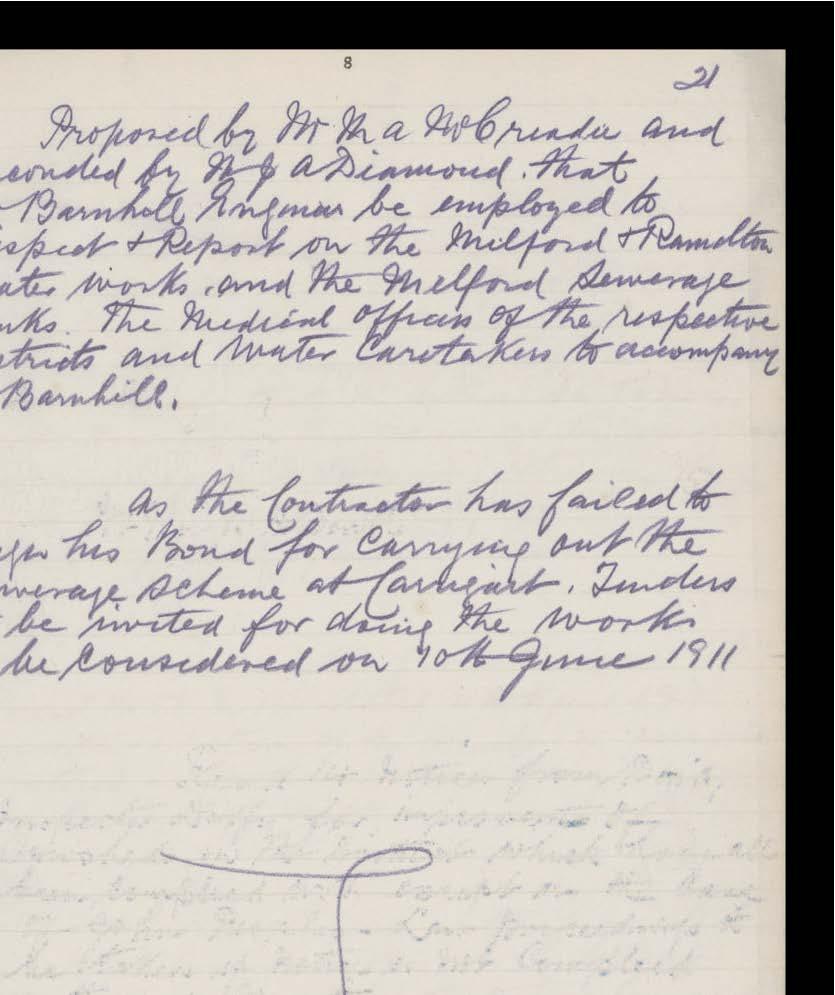 8
21
Proposed by Mr M A McCreadie and
conded by Mr J A Diamond. that
Barnhill Engineer be employed to
spect & Report on the Milford & Ramelton
ater works, and the Milford Sewerage
nks. The Medical Officers of the respective
stricts and Water Caretakers to accompany
Barnhill.
As the Contractor has failed to
his Bond for Carrying out the
werage Scheme at Carrigart. Tenders
be invited for doing the works
be considered on 10th June 1911